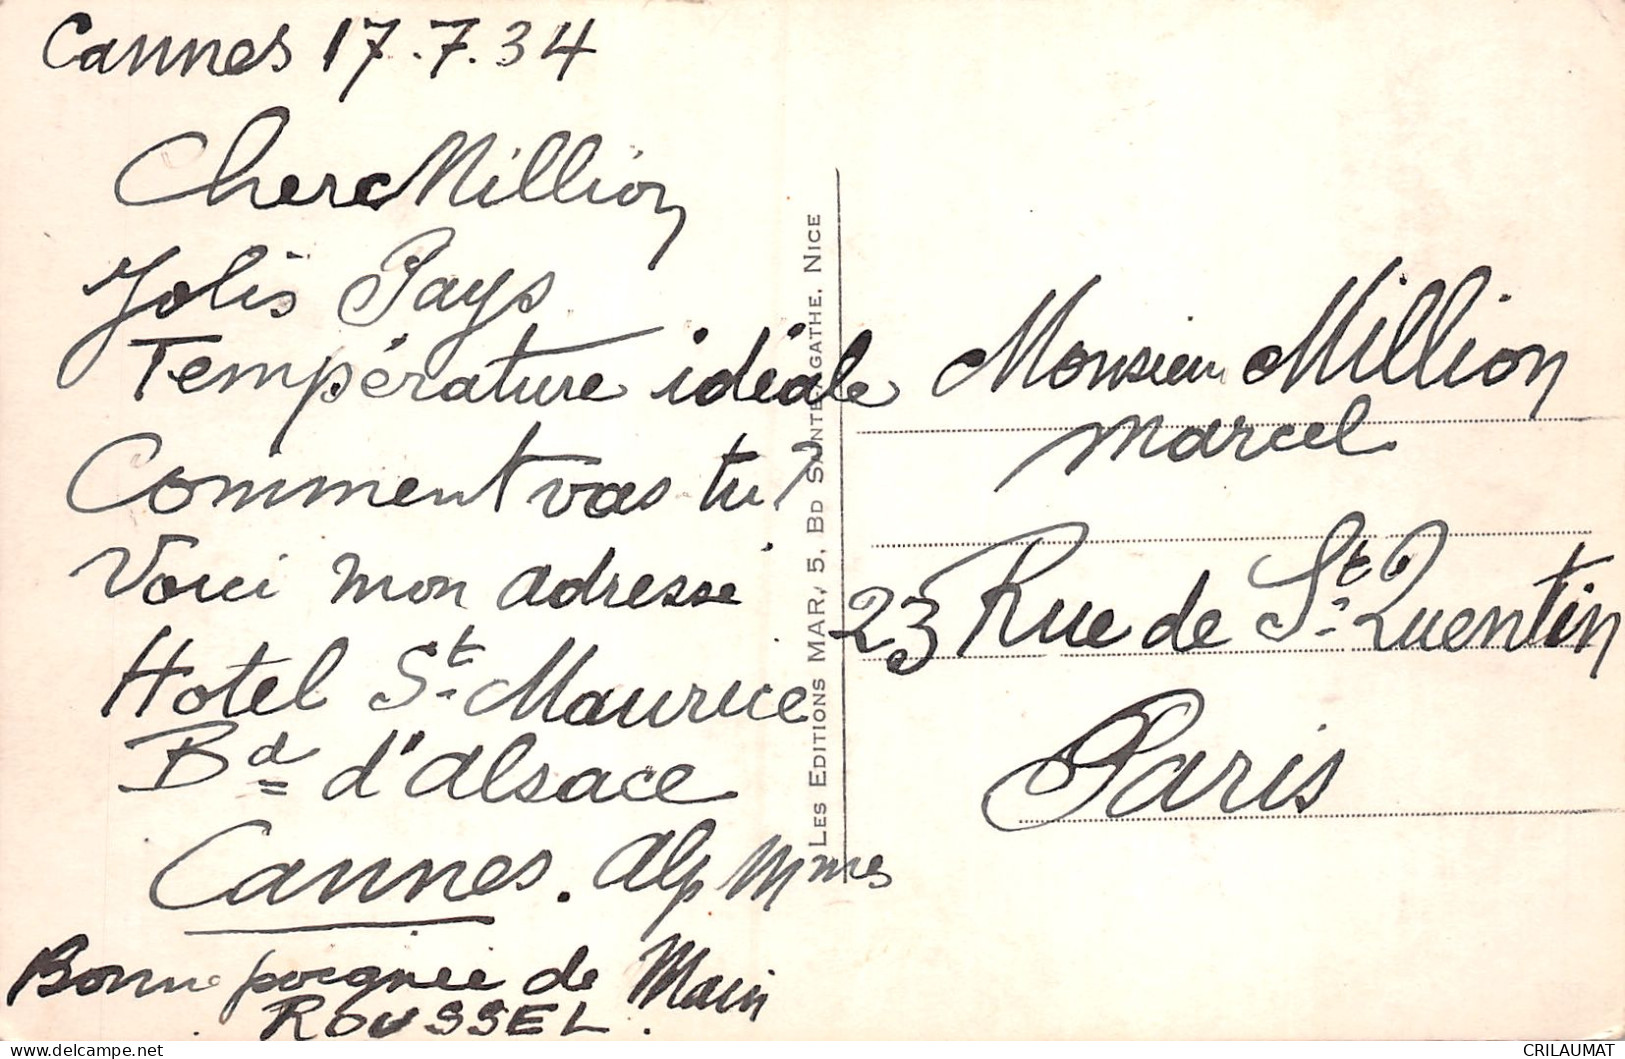 Cannes 17.7.34
Cher Million
Jolis Pays
Température idéale
Comment vas tu?
Voici mon adresse
Hotel St Maurice
Bd d'alsace
Cannes. Alp Mmes
Bonne poignée de Main
ROUSSEL.
LES EDITIONS MAR, 5, BD SAINTE-AGATHE. NICE
Monsieur Million
Marcel
23 Rue de St Quentin
Paris
CRILAUMAT